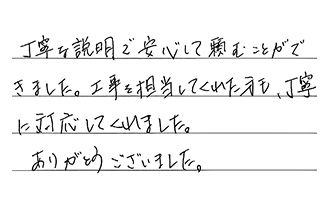 丁寧な説明で安心して頼むことがで
きました。工事を担当してくれた方も、丁寧
に対応してくれました。
ありがとうございました。